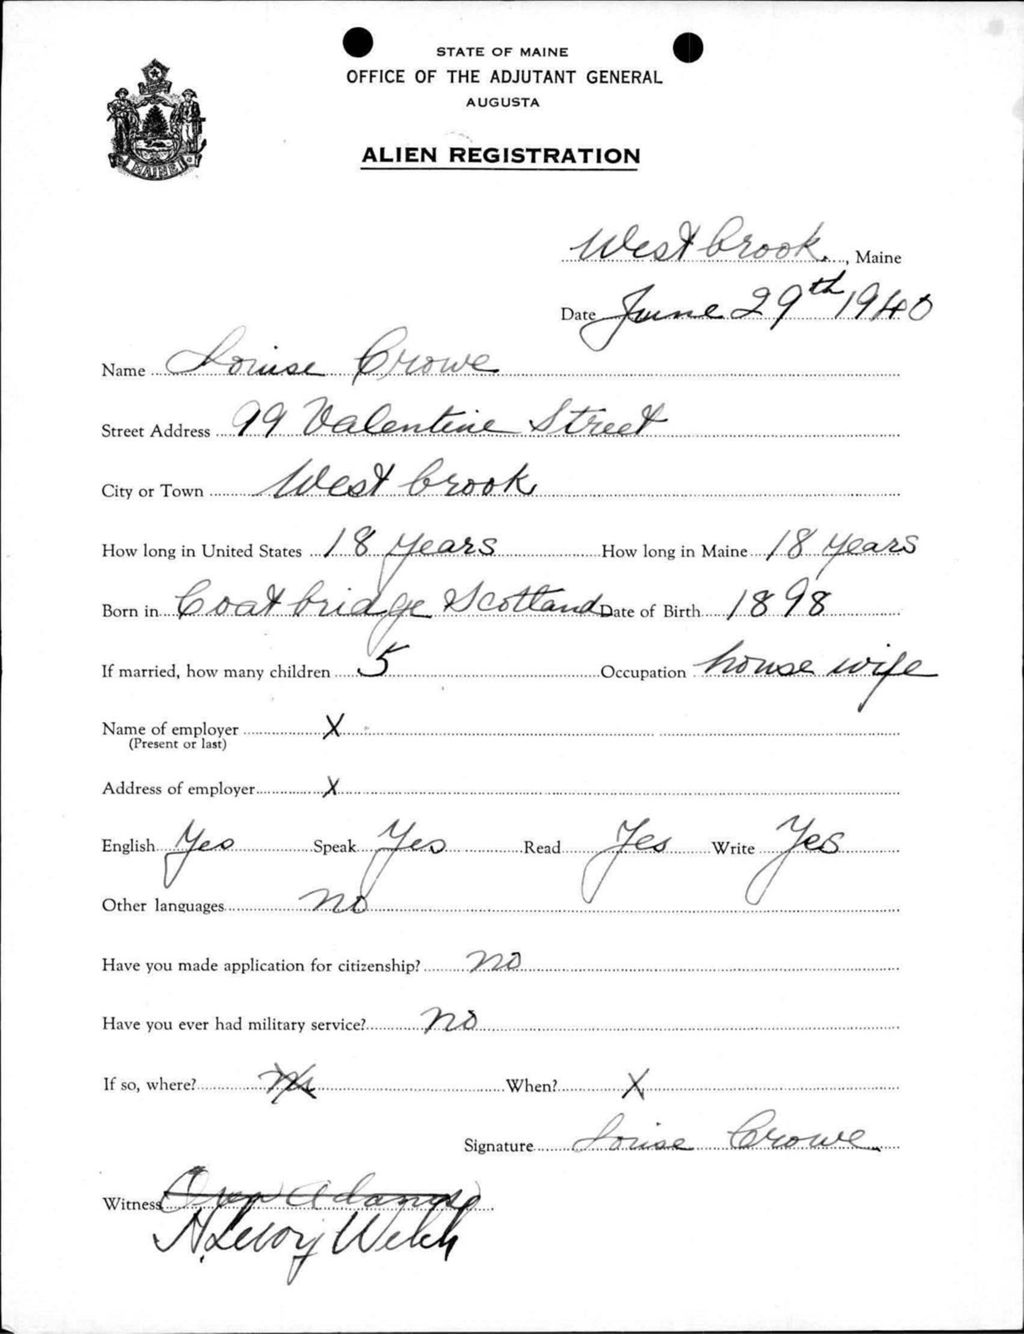 STATE OF MAINE
OFFICE OF THE ADJUTANT GENERAL
AUGUSTA
ALIEN REGISTRATION
MAINE
West brook, Maine
Date June 29th 1940
Name Louise Crowe
Street Address 99 Valentine Street
City or Town West brook
How long in United States 18 years How long in Maine 18 years
Born in Coat bridge Scotland Date of Birth 1898
If married, how many children 5 Occupation house wife
Name of employer X
(Present or last)
Address of employer X
English Yes Speak Yes Read Yes Write Yes
Other languages no
Have you made application for citizenship? no
Have you ever had military service? no
If so, where? When? X
Signature Louise Crowe
Witness Adams
N. Leroy Welch